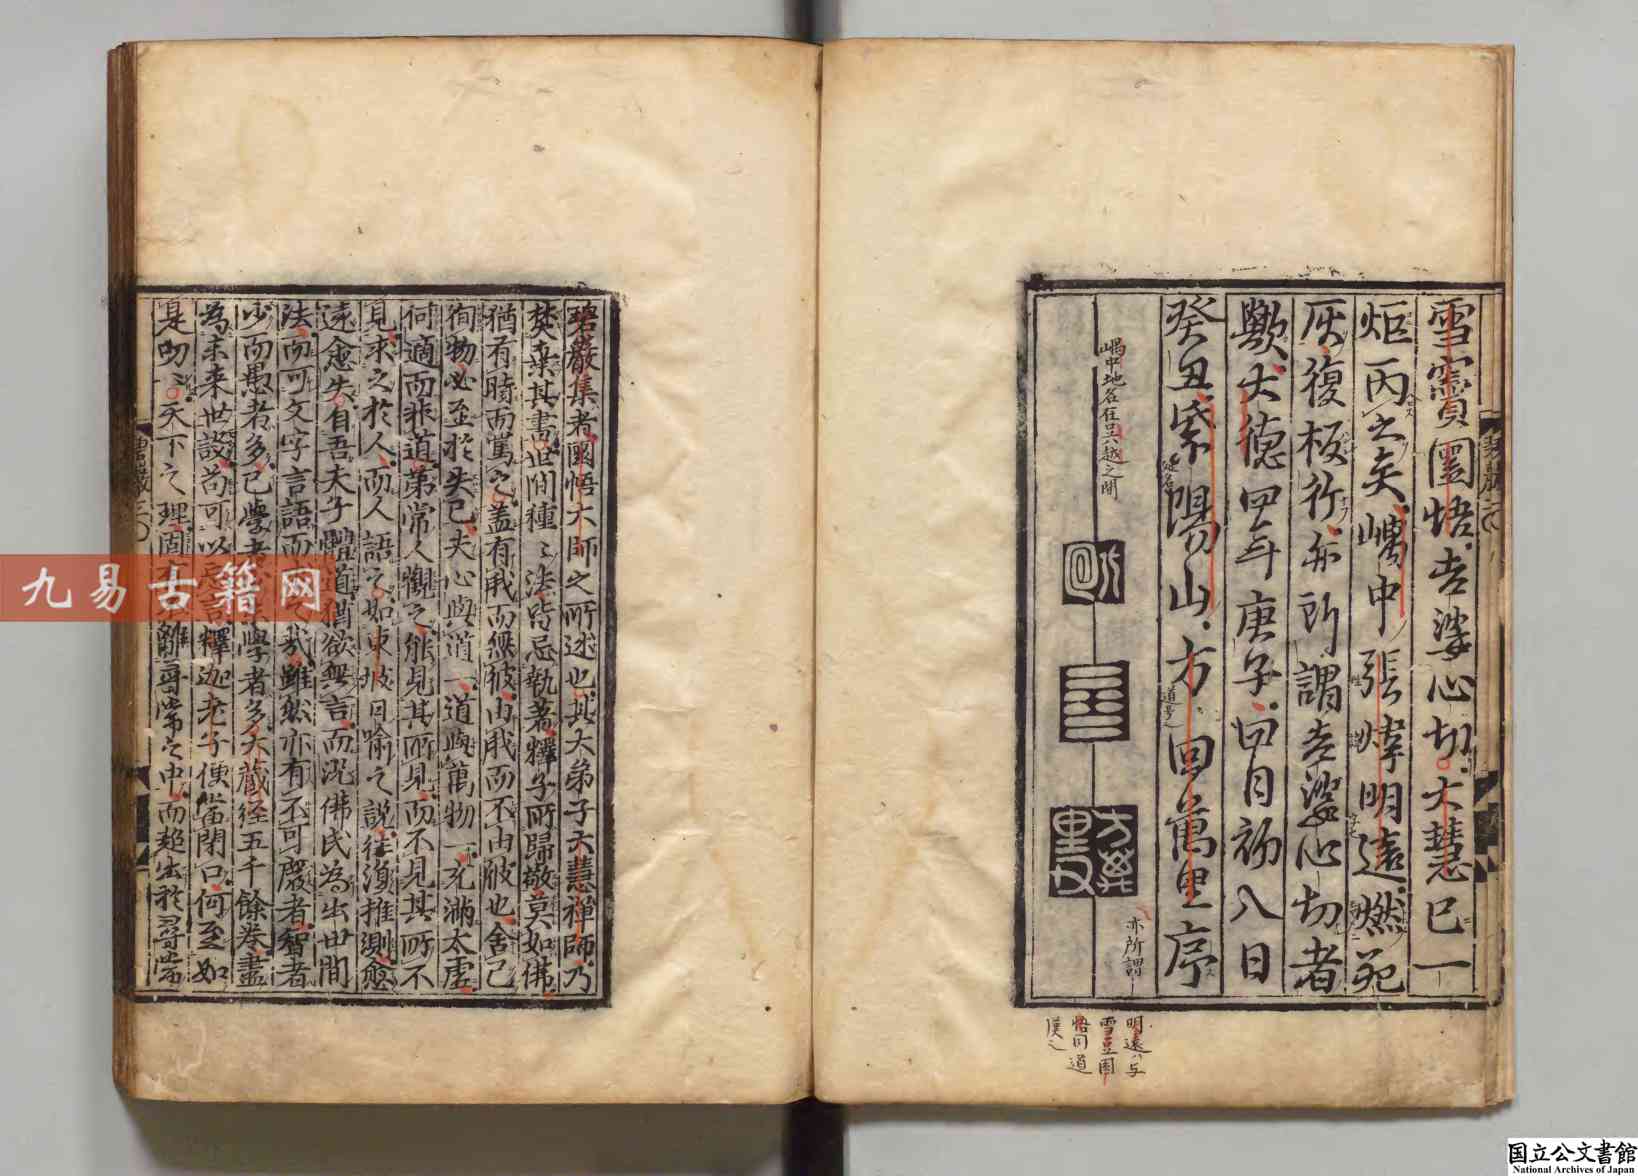 雪竇圜悟老婆心切大慧已一
炬丙之矣嵎中張煒明遠燃死
灰復板行亦所謂老婆心切者
歟大德四年庚子四月初八日
癸丑紫陽山方回萬里序
嵎中地名在吳越之間
道号
亦所謂
明遠ハ与
雪豆圜
悟同道
漢
方回
萬里父
碧巖集者圜悟大師之所述也其大弟子大慧禪師乃
焚棄其書世間種種法皆忌執著釋子所歸敬莫如佛
猶有時而罵之蓋有我而無彼由我而不由彼也舍己
徇物必至於失己夫心與道一道與萬物一充滿太虛
何適而非道第常人觀之能見其所見而不見其所不
見求之於人而人語之如東坡日喻之說往復推測愈
遠愈失自吾夫子體道猶欲無言而況佛氏為出世間
法而可文字言語而求之哉雖然亦有不可廢者智者
少而愚者多已學者少未學者多大藏經五千餘卷盡
為未來世設苟可以忘言釋迦老子便當閉口何至如
是叨叨天下之理固有不離尋常之中而超出於尋常
九易古籍网
国立公文書館
National Archives of Japan